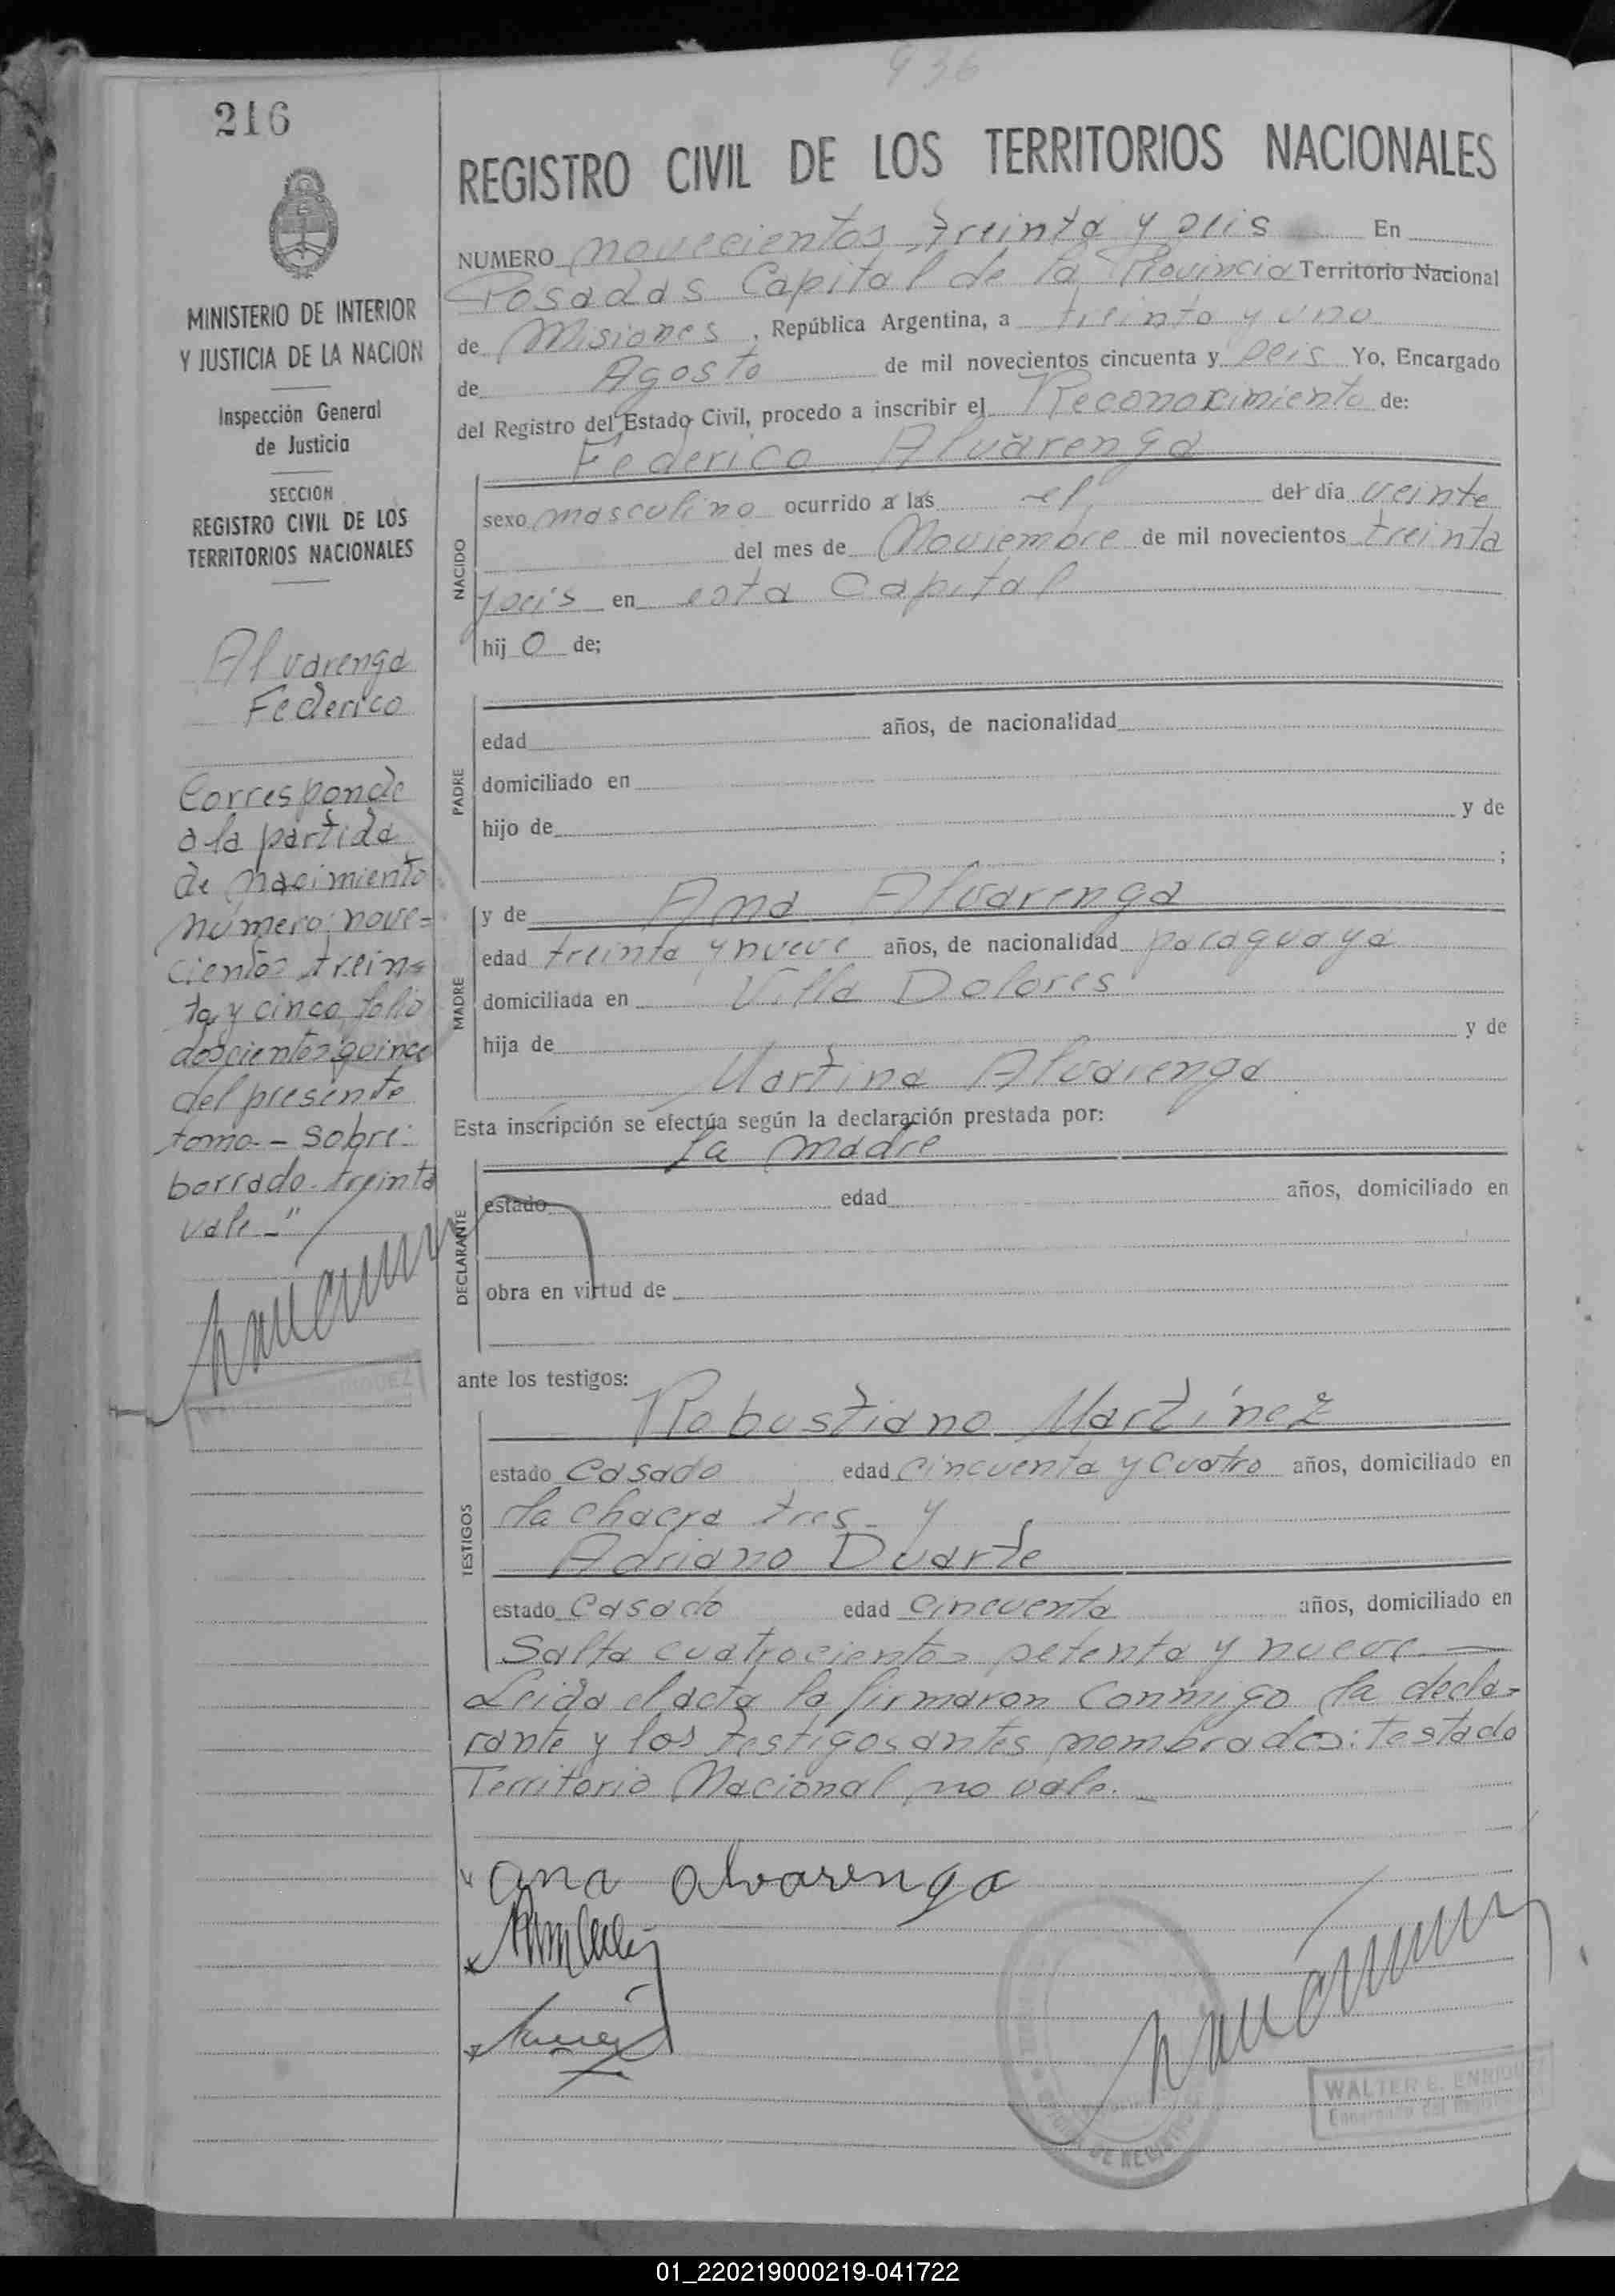 936
216
REGISTRO CIVIL DE LOS TERRITORIOS NACIONALES
NUMERO novecientos treinta y seis En
Posadas Capital de la Provincia Territorio Nacional
de Misiones, República Argentina, a treinta y uno
de Agosto de mil novecientos cincuenta y seis Yo, Encargado
del Registro del Estado Civil, procedo a inscribir el Reconocimiento de:
Federico Alvarenga
NACIDO
sexo masculino ocurrido a las el del día veinte
del mes de Noviembre de mil novecientos treinta
y seis en esta Capital
hij o de;
PADRE
edad años, de nacionalidad
domiciliado en
hijo de y de
;
MADRE
y de Ana Alvarenga
edad treinta y nueve años, de nacionalidad paraguaya
domiciliada en Villa Dolores
hija de y de
Martina Alvarenga
Esta inscripción se efectúa según la declaración prestada por:
la madre
DECLARANTE
estado edad años, domiciliado en
obra en virtud de
ante los testigos:
TESTIGOS
Robustiano Martínez
estado Casado edad cincuenta y cuatro años, domiciliado en
la chacra tres - y
Adriano Duarte
estado Casado edad cincuenta años, domiciliado en
Salta cuatrocientos setenta y nueve —
Leida el acta la firmaron conmigo la decla-
rante y los testigos antes nombrados: testado
Territorio Nacional no vale. —
ana alvarenga
WALTER E. ENRIQUEZ
Encargado del Registro
MINISTERIO DE INTERIOR
Y JUSTICIA DE LA NACION
Inspección General
de Justicia
SECCION
REGISTRO CIVIL DE LOS
TERRITORIOS NACIONALES
Alvarenga
Federico
Corresponde
a la partida
de nacimiento
número: nove=
cientos trein=
ta y cinco folio
doscientos quince
del presente
tomo - sobre:
borrado - treinta
vale - "
01_220219000219-041722